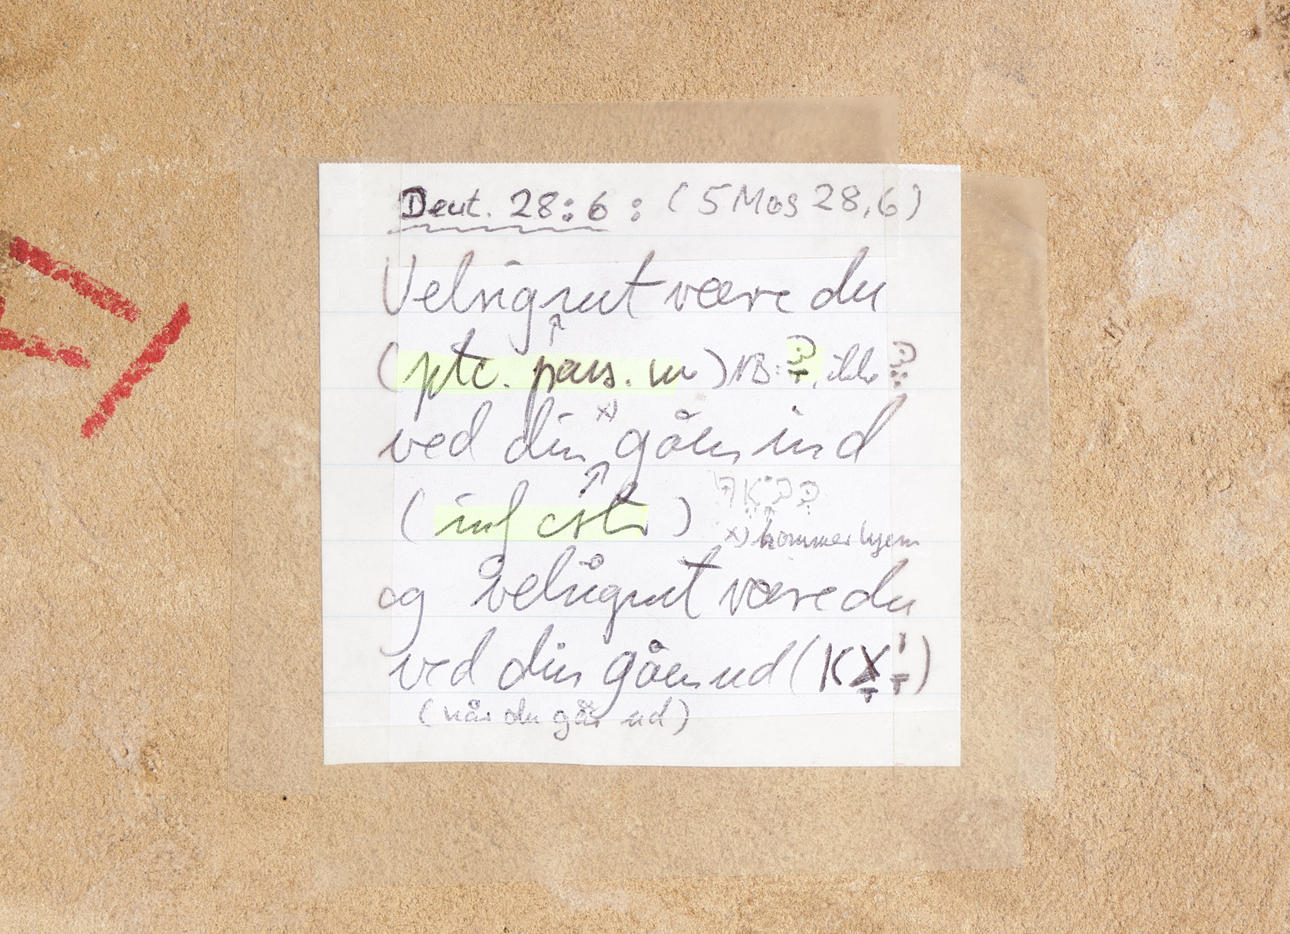 Deut. 28:6: (5 Mos 28,6)
Velsignet være du
(ptc. pass. m) NB: ךָ, ikke ךְ
ved din x) gåen ind
(inf cstr)
x) kommer hjem
og velsignet være du
ved din gåen ud (
(når du går ud)